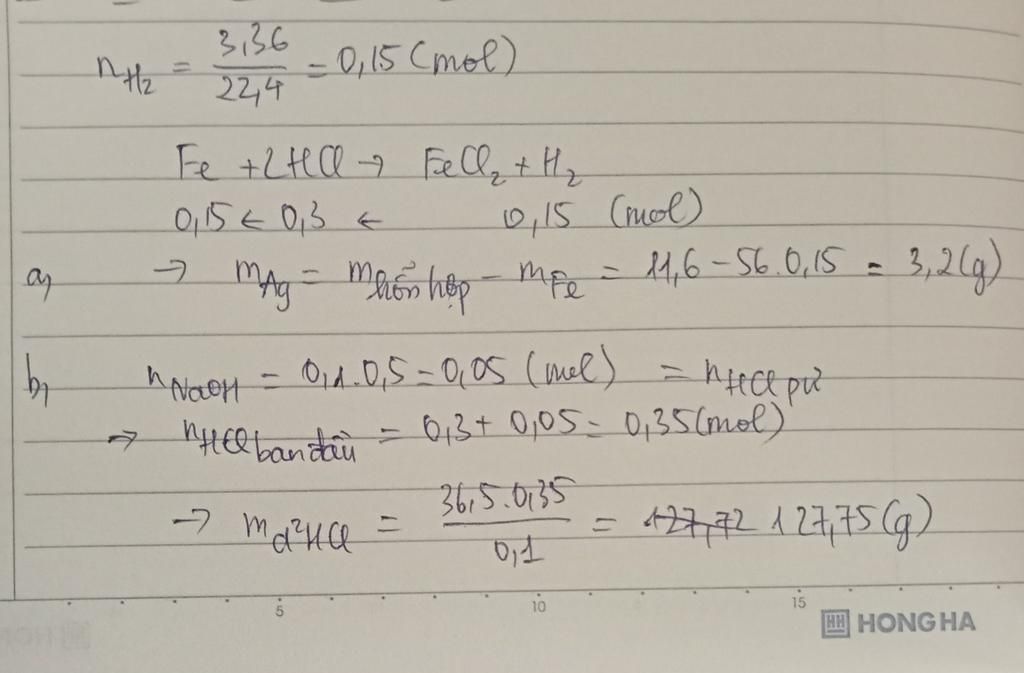 nH₂ = 3,36 / 22,4 = 0,15 (mol)
Fe + 2HCl → FeCl₂ + H₂
0,15 ← 0,3 ← 0,15 (mol)
a) → mAg = mhỗn hợp - mFe = 11,6 - 56.0,15 = 3,2 (g)
b) nNaOH = 0,1.0,5 = 0,05 (mol) = nHCl pư
→ nHCl ban đầu = 0,3 + 0,05 = 0,35 (mol)
→ md²HCl = 36,5.0,35 / 0,1 = 127,72 127,75 (g)
5 10 15
HH HONG HA